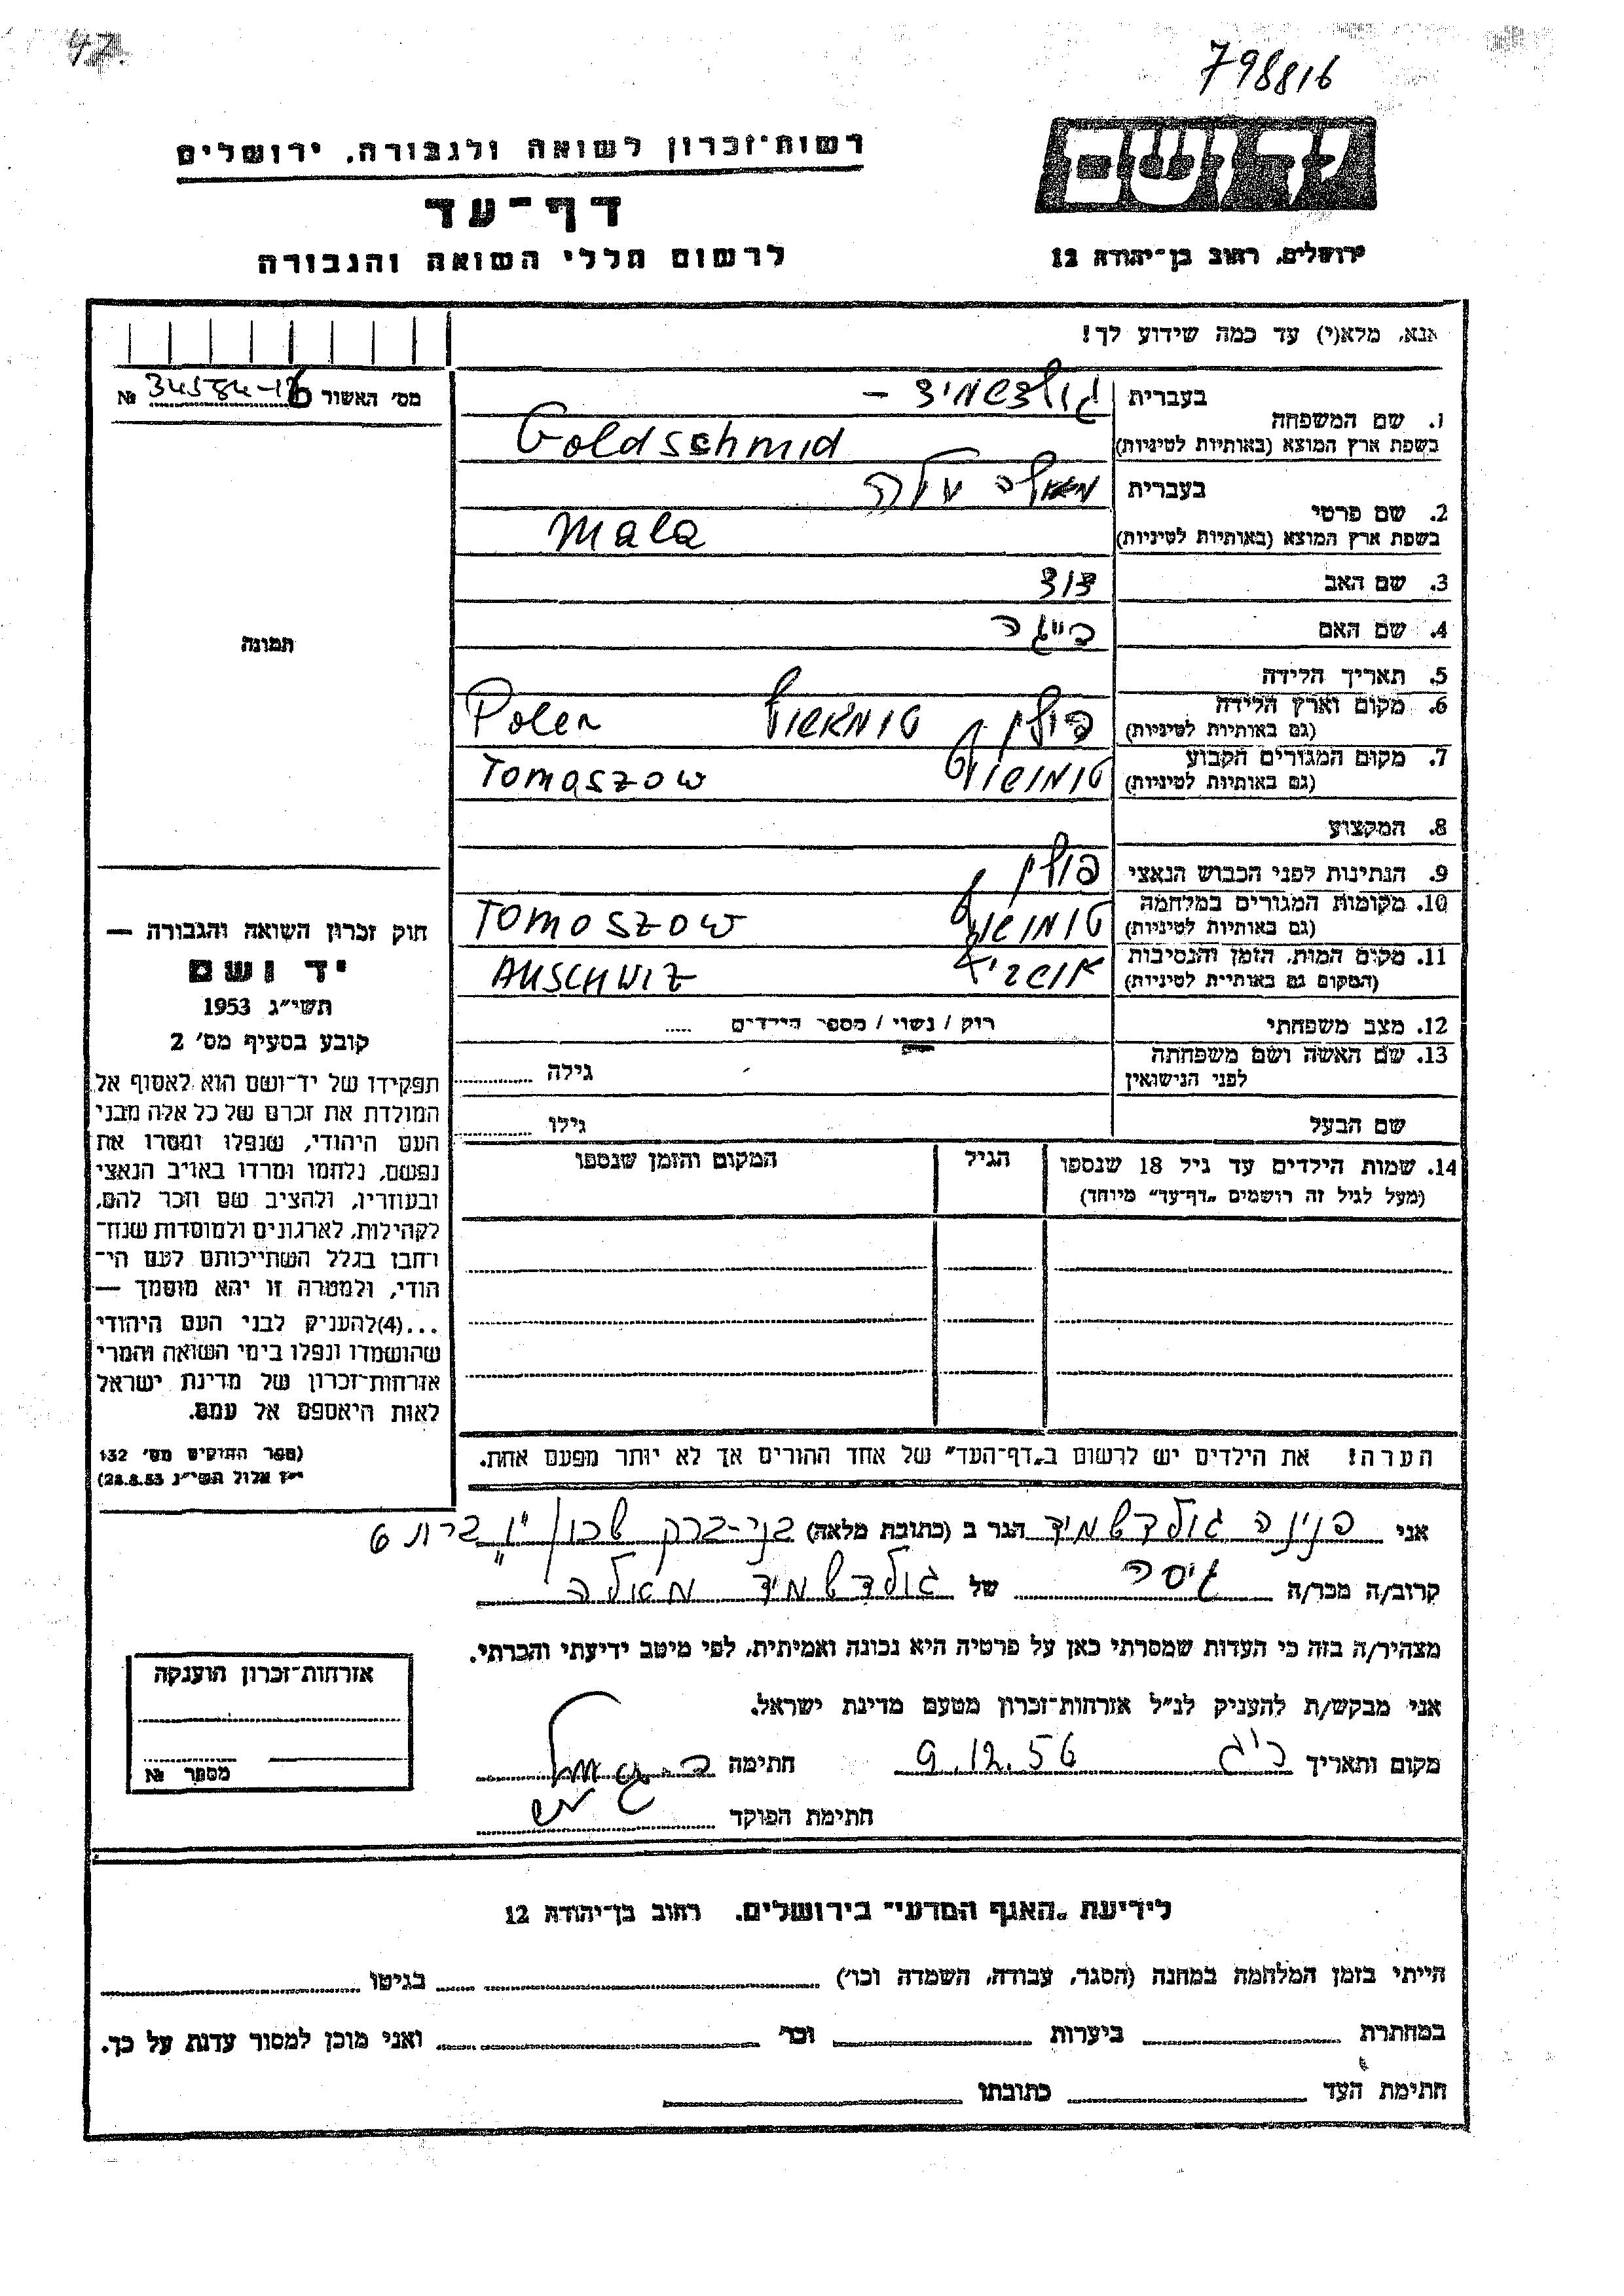 47.
798816
יד ושם
ירושלים, רחוב בן־יהודה 12
רשות־זכרון לשואה ולגבורה, ירושלים
דף־עד
לרשום חללי השואה והגבורה
אנא, מלא(י) עד כמה שידוע לך!
מס׳ האשור № 34584-16
1. שם המשפחה
בעברית גולדשמיד –
בשפת ארץ המוצא (באותיות לטיניות) Goldschmid
2. שם פרטי
בעברית מאלה
בשפת ארץ המוצא (באותיות לטיניות) Mala
3. שם האב דוד
4. שם האם
5. תאריך הלידה
6. מקום וארץ הלידה
(גם באותיות לטיניות) פולין Polen
7. מקום המגורים הקבוע
(גם באותיות לטיניות) טומושוב Tomoszow
8. המקצוע
9. הנתינות לפני הכבוש הנאצי פולין
10. מקומות המגורים במלחמה
(גם באותיות לטיניות) טומושוב Tomoszow
11. מקום המות, הזמן והנסיבות
(המקום גם באותיות לטיניות) AUSCHWIZ
12. מצב משפחתי רווק / נשוי / מספר הילדים .....
13. שם האשה ושם משפחתה
לפני הנישואין
גילה
שם הבעל גילו
14. שמות הילדים עד גיל 18 שנספו
(מעל לגיל זה רושמים „דף־עד״ מיוחד)
הגיל
המקום והזמן שנספו
הערה! את הילדים יש לרשום ב„דף־העד״ של אחד ההורים אך לא יותר מפעם אחת.
תמונה
חוק זכרון השואה והגבורה —
יד ושם
תשי״ג 1953
קובע בסעיף מס׳ 2
תפקידו של יד־ושם הוא לאסוף אל
המולדת את זכרם של כל אלה מבני
העם היהודי, שנפלו ומסרו את
נפשם, נלחמו ומרדו באויב הנאצי
ובעוזריו, ולהציב שם וזכר להם,
לקהילות, לארגונים ולמוסדות שנח־
רבו בגלל השתייכותם לעם הי־
הודי, ולמטרה זו יהא מוסמך —
...(4)להעניק לבני העם היהודי
שהושמדו ונפלו בימי השואה והמרי
אזרחות־זכרון של מדינת ישראל
לאות היאספם אל עמם.
(ספר החוקים מס׳ 132
י״ז אלול תשי״ג 28.8.53)
אני פנינה גולדשמיד הגר ב (כתובת מלאה) בני-ברק שכון ברוט 6
קרוב/ה מכר/ה גיסה של גולדשמיד מאלה
מצהיר/ה בזה כי העדות שמסרתי כאן על פרטיה היא נכונה ואמיתית, לפי מיטב ידיעתי והכרתי.
אני מבקש/ת להעניק לנ״ל אזרחות־זכרון מטעם מדינת ישראל.
מקום ותאריך 9.12.56 חתימה
חתימת הפוקד
אזרחות־זכרון הוענקה
מספר №
לידיעת „האגף המדעי״ בירושלים. רחוב בן־יהודה 12
הייתי בזמן המלחמה במחנה (הסגר, עבודה, השמדה וכו׳) בגיטו
במחתרת ביערות וכו׳ ואני מוכן למסור עדות על כך.
חתימת העד כתובתו